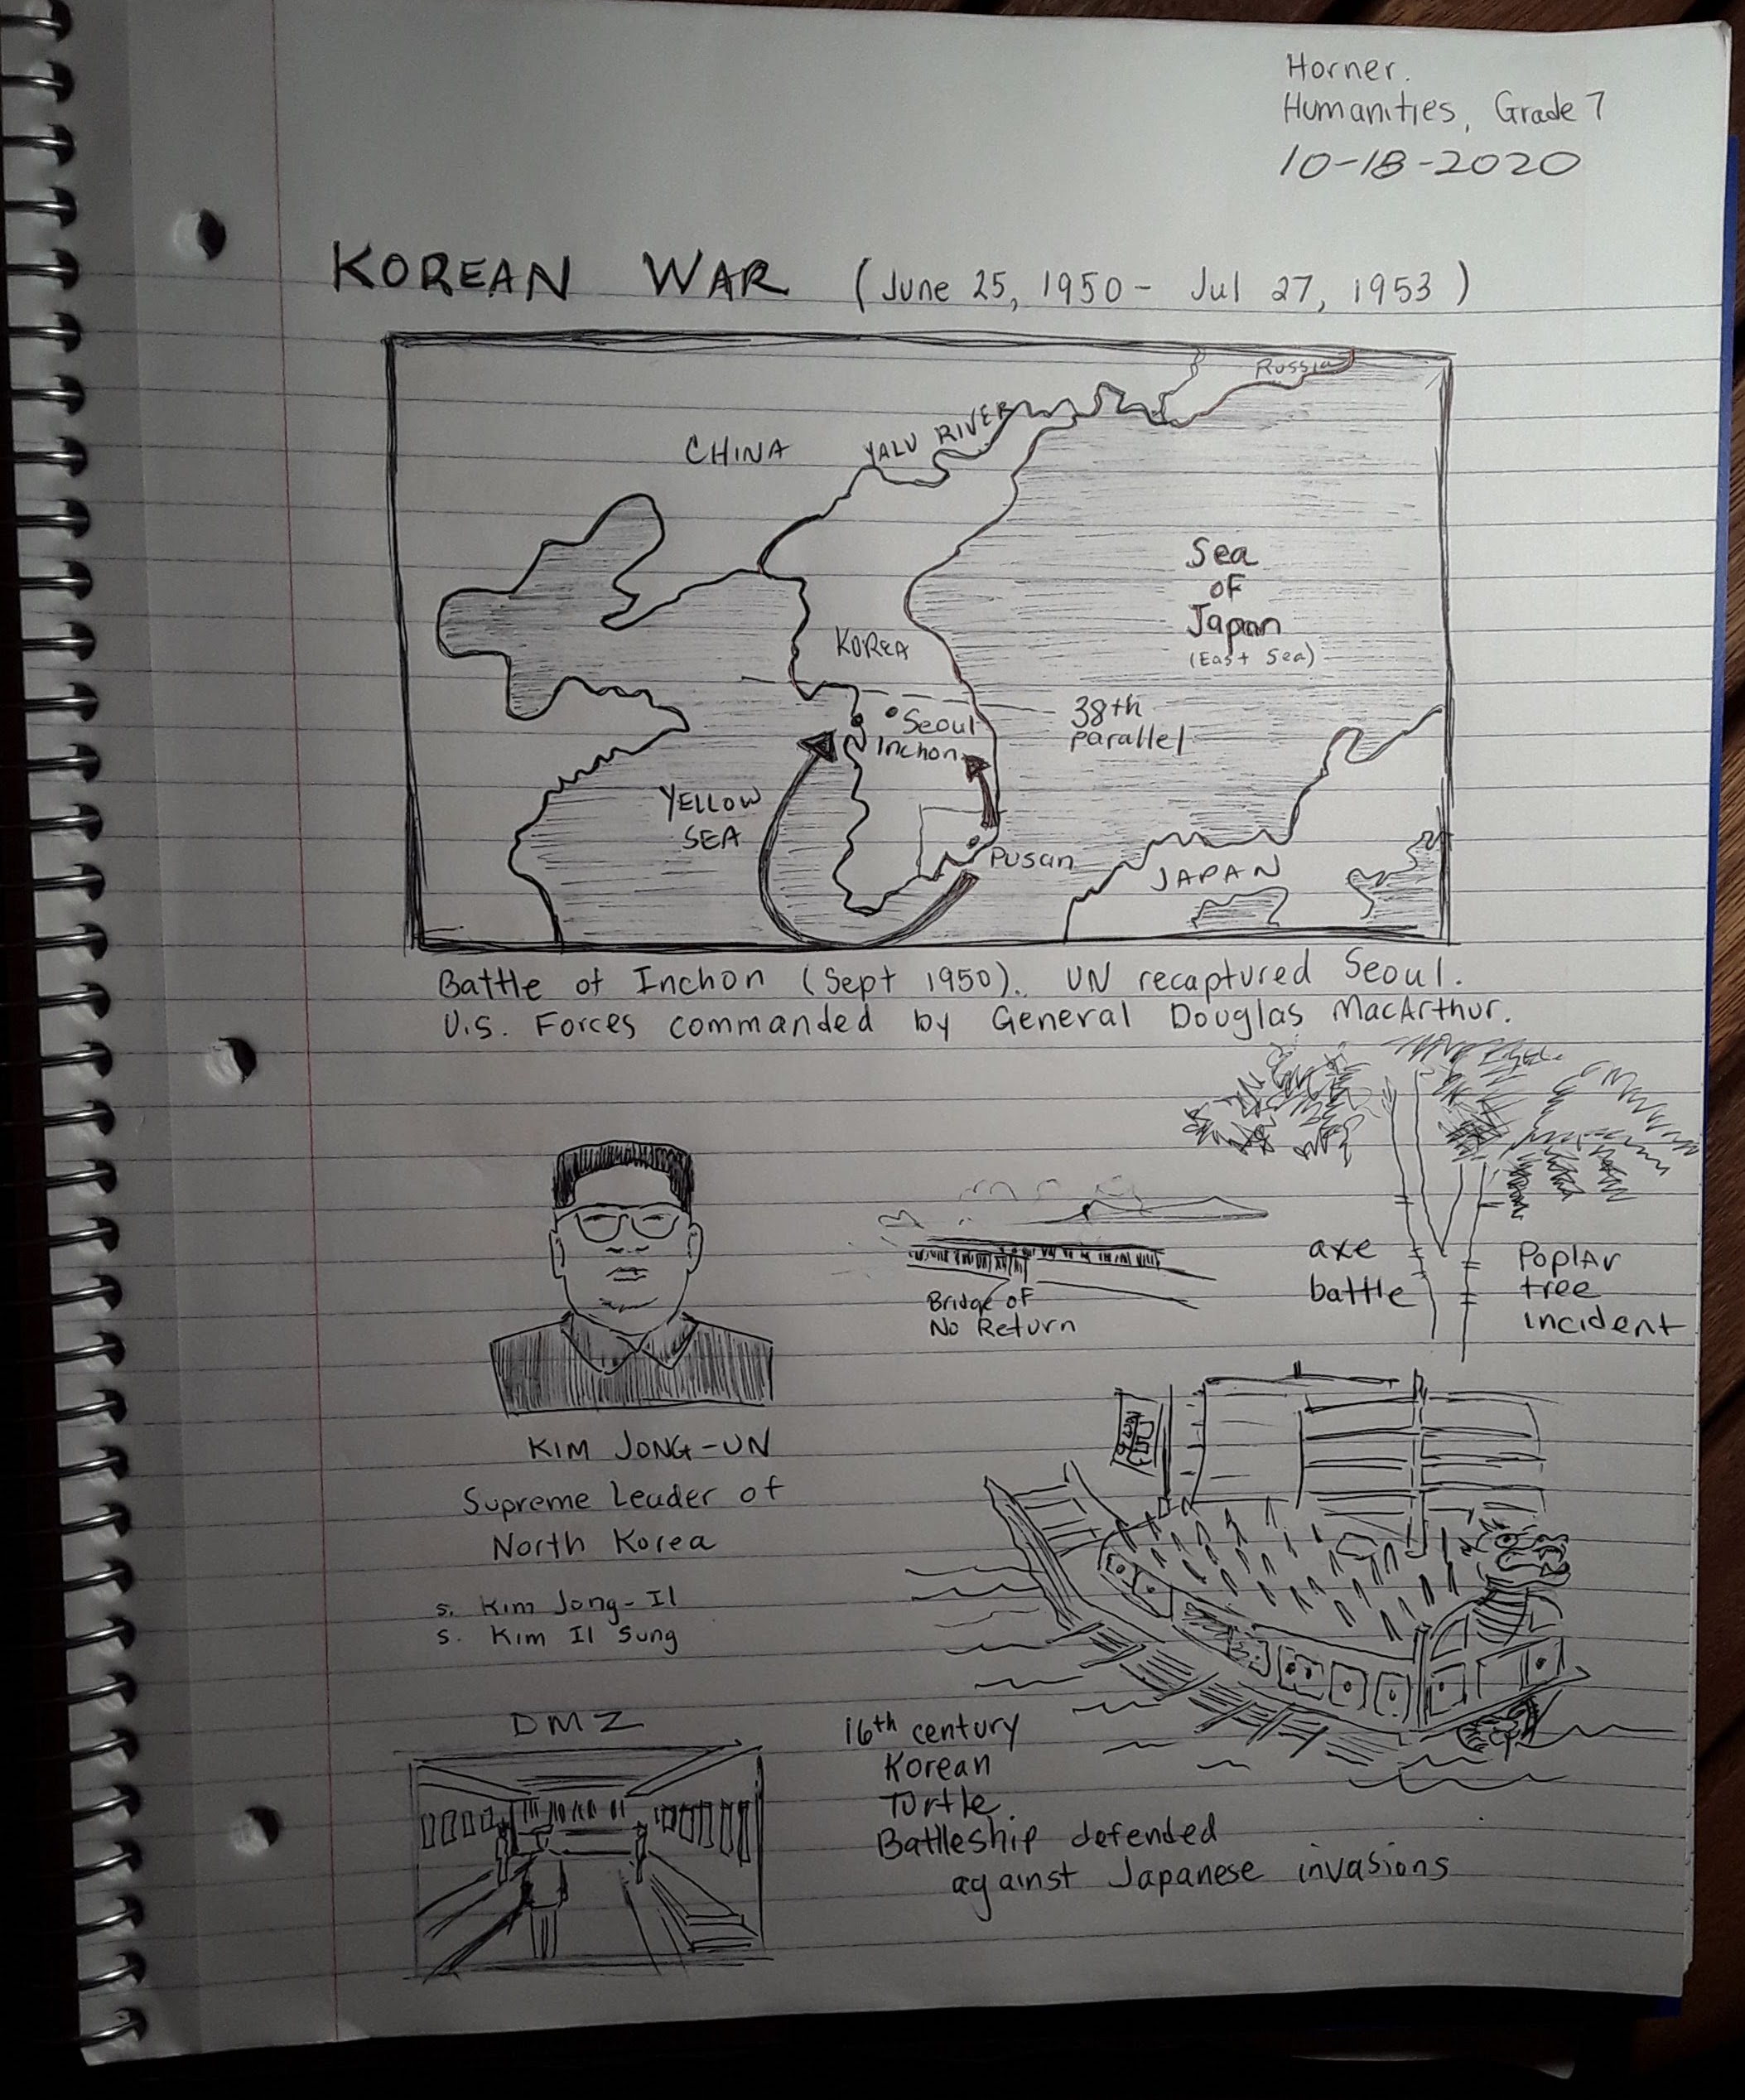 Horner.
Humanities, Grade 7
10-18-2020
KOREAN WAR (June 25, 1950 - Jul 27, 1953)
Russia
CHINA
YALU RIVER
Sea
of
Japan
(East Sea)
KOREA
38th
parallel
Seoul
Inchon
YELLOW
SEA
Pusan
JAPAN
Battle of Inchon (Sept 1950). UN recaptured Seoul.
U.S. Forces commanded by General Douglas MacArthur.
axe
battle
Poplar
tree
incident
Bridge of
No Return
KIM JONG-UN
Supreme Leader of
North Korea
s. Kim Jong-Il
s. Kim Il Sung
DMZ
16th century
Korean
Turtle
Battleship defended
against Japanese invasions